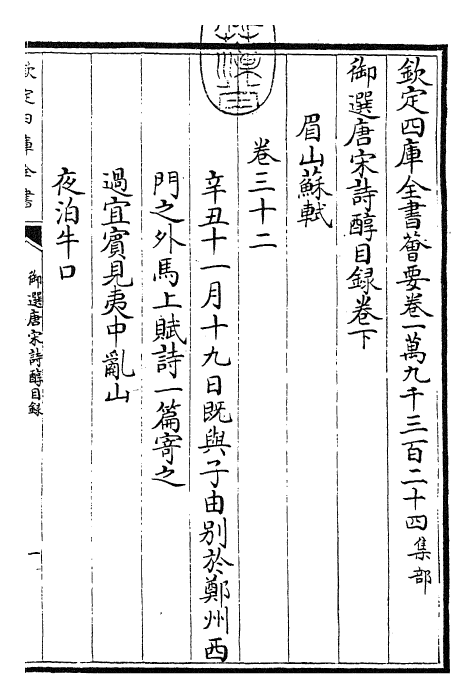 欽定四庫全書薈要卷一萬九千三百二十四集部
御選唐宋詩醇目録卷下
眉山蘇軾
卷三十二
辛丑十一月十九日既與子由别於鄭州西
門之外馬上賦詩一篇寄之
過宜賓見夷中亂山
夜泊牛口
欽定四庫全書
御選唐宋詩醇目録
一